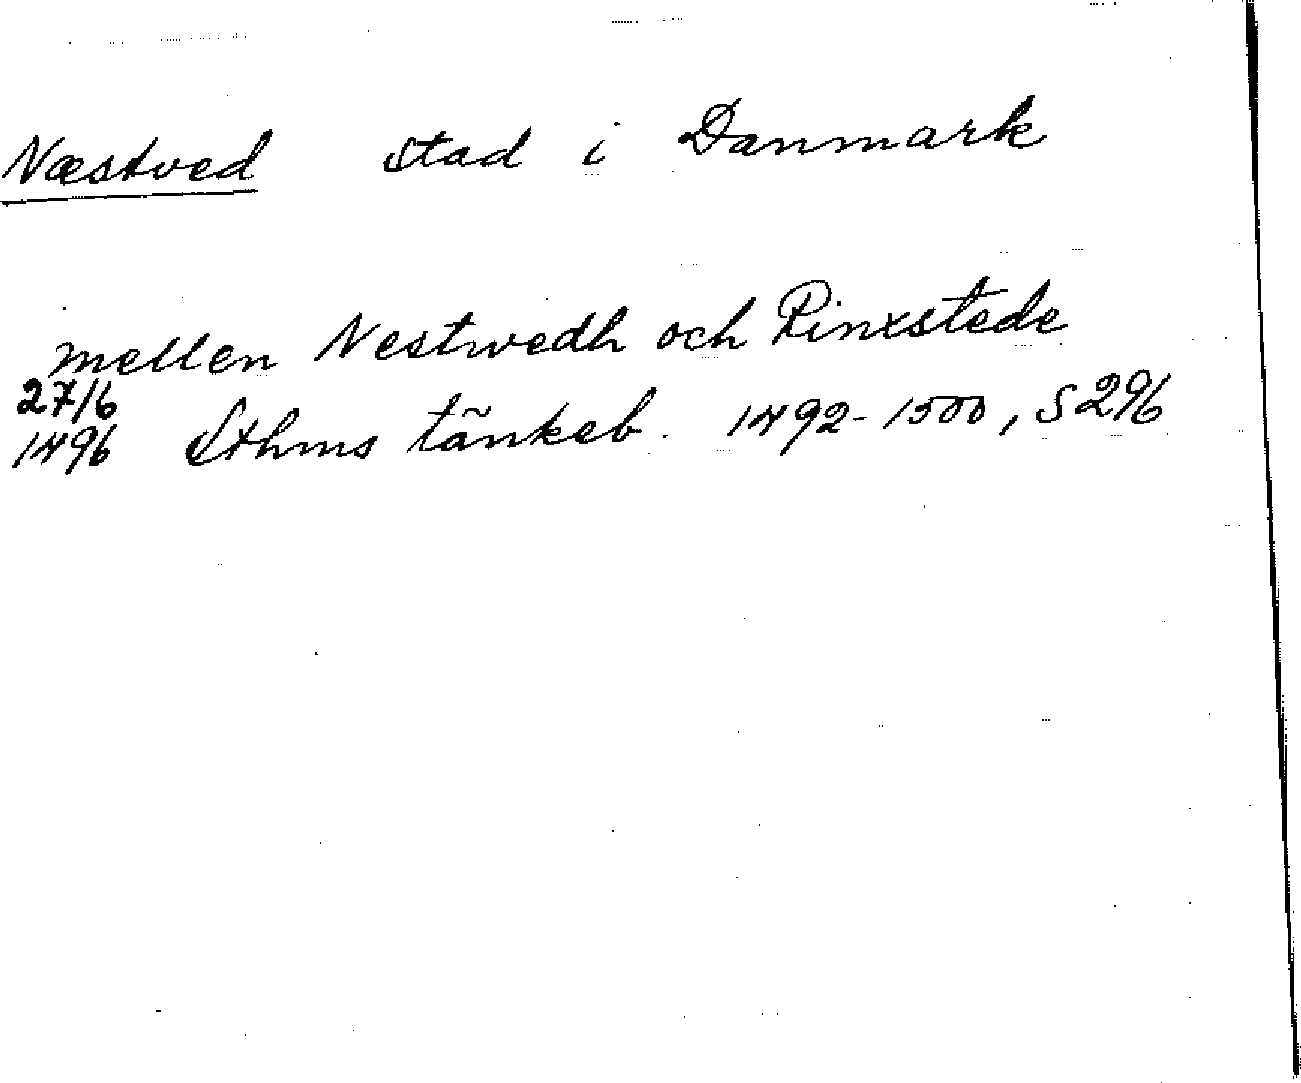 Næstved stad i Danmark
mellen Nestwedh och Rinxstede
27/6
1496 Sthms tänkeb. 1492-1500, S 296